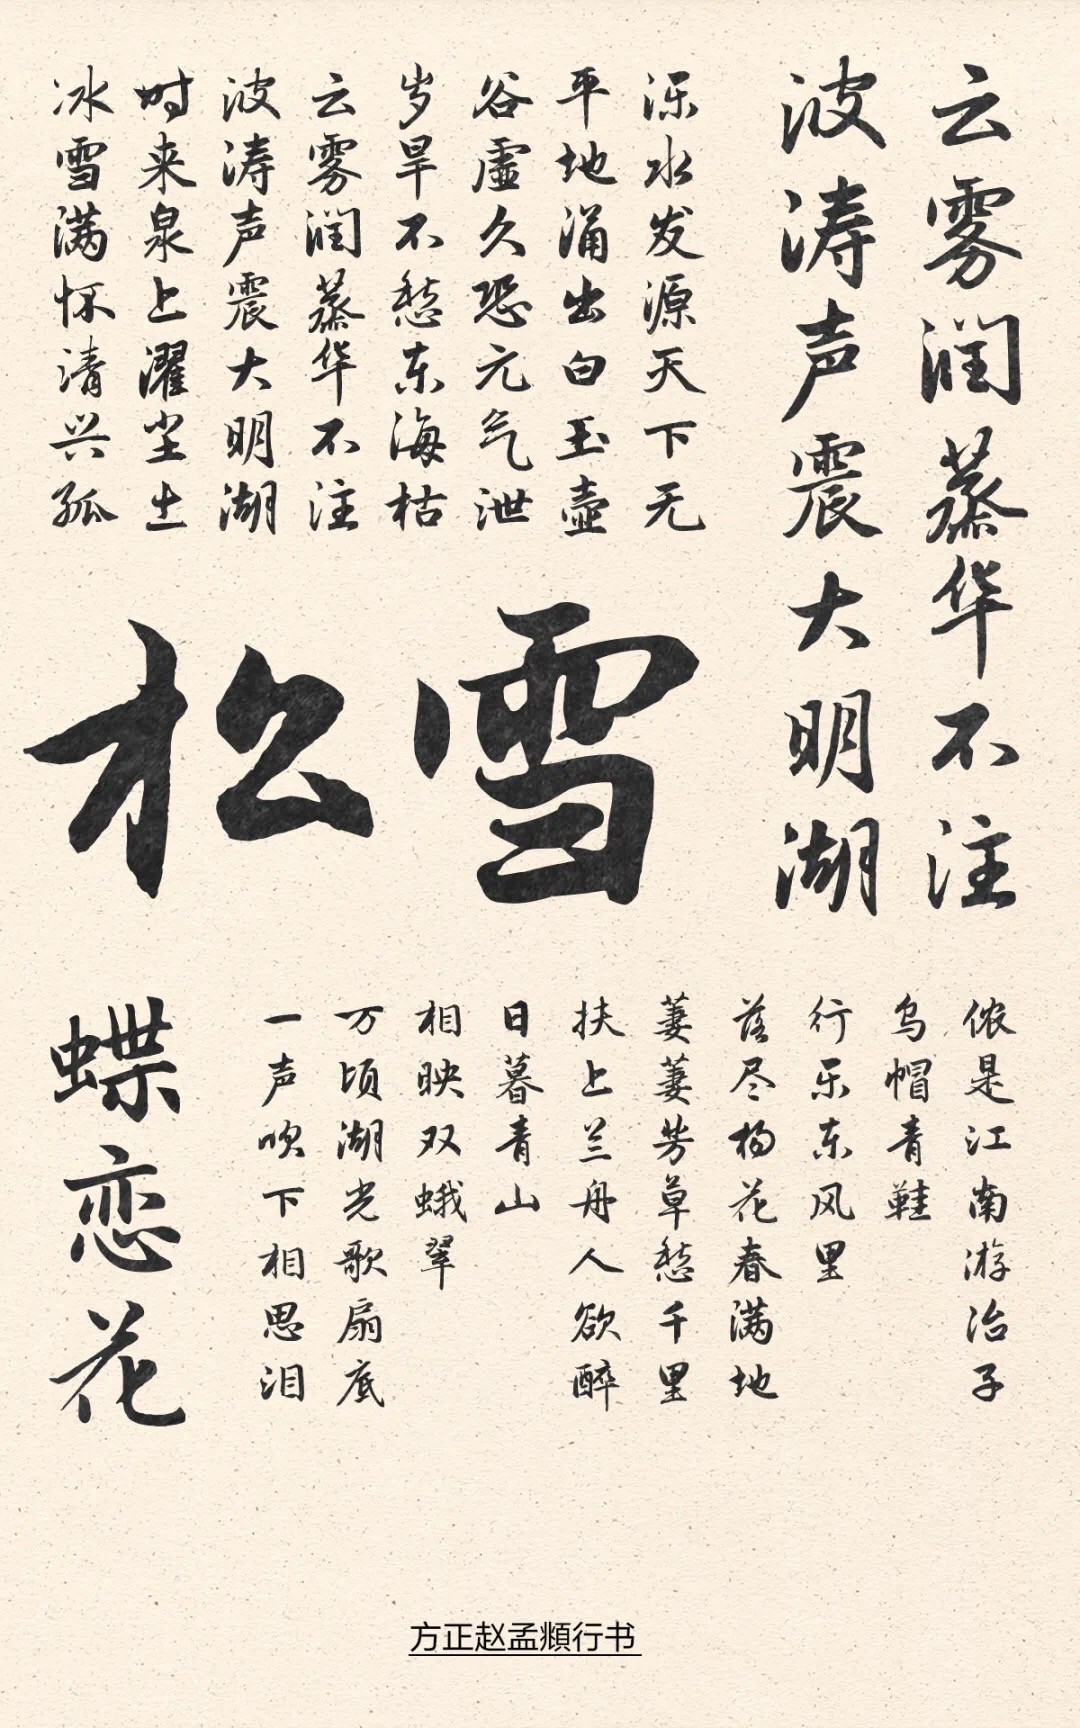 云雾润蒸华不注
波涛声震大明湖
泺水发源天下无
平地涌出白玉壶
谷虚久恐元气泄
岁旱不愁东海枯
云雾润蒸华不注
波涛声震大明湖
时来泉上濯尘土
冰雪满怀清兴孤
松雪
侬是江南游冶子
乌帽青鞋
行乐东风里
落尽杨花春满地
萋萋芳草愁千里
扶上兰舟人欲醉
日暮青山
相映双蛾翠
万顷湖光歌扇底
一声吹下相思泪
蝶恋花
方正赵孟頫行书